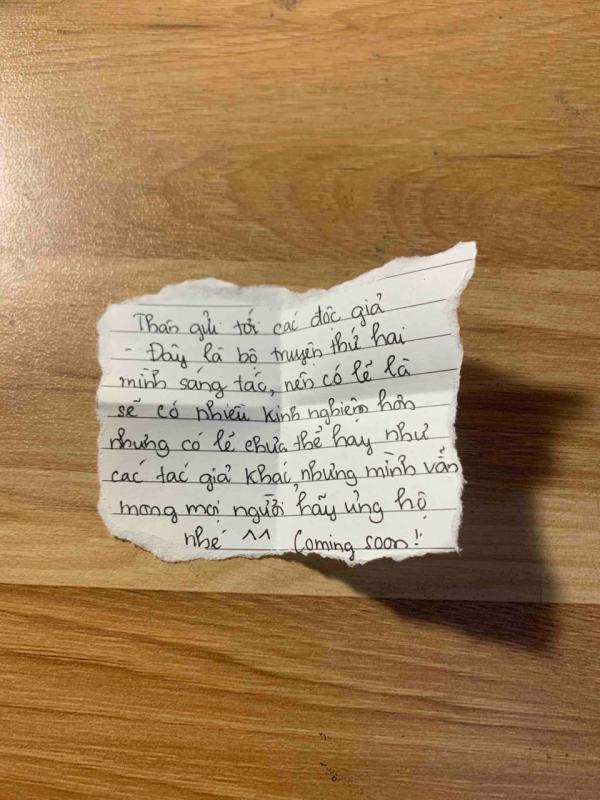 Thân gửi tới các độc giả
- Đây là bộ truyện thứ hai
mình sáng tác, nên có lẽ là
sẽ có nhiều kinh nghiệm hơn
nhưng có lẽ chưa thể hay như
các tác giả khác nhưng mình vẫn
mong mọi người hãy ủng hộ
nhé ^^ Coming soon!